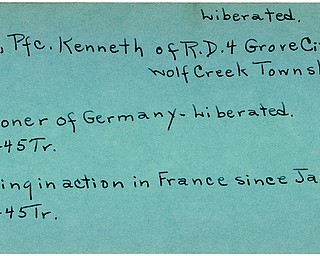 Liberated.
, Pfc. Kenneth of R.D.4 Grove Ci
Wolf Creek Towns
oner of Germany - Liberated.
-45 Tr.
ing in action in France since Ja
-45 Tr.